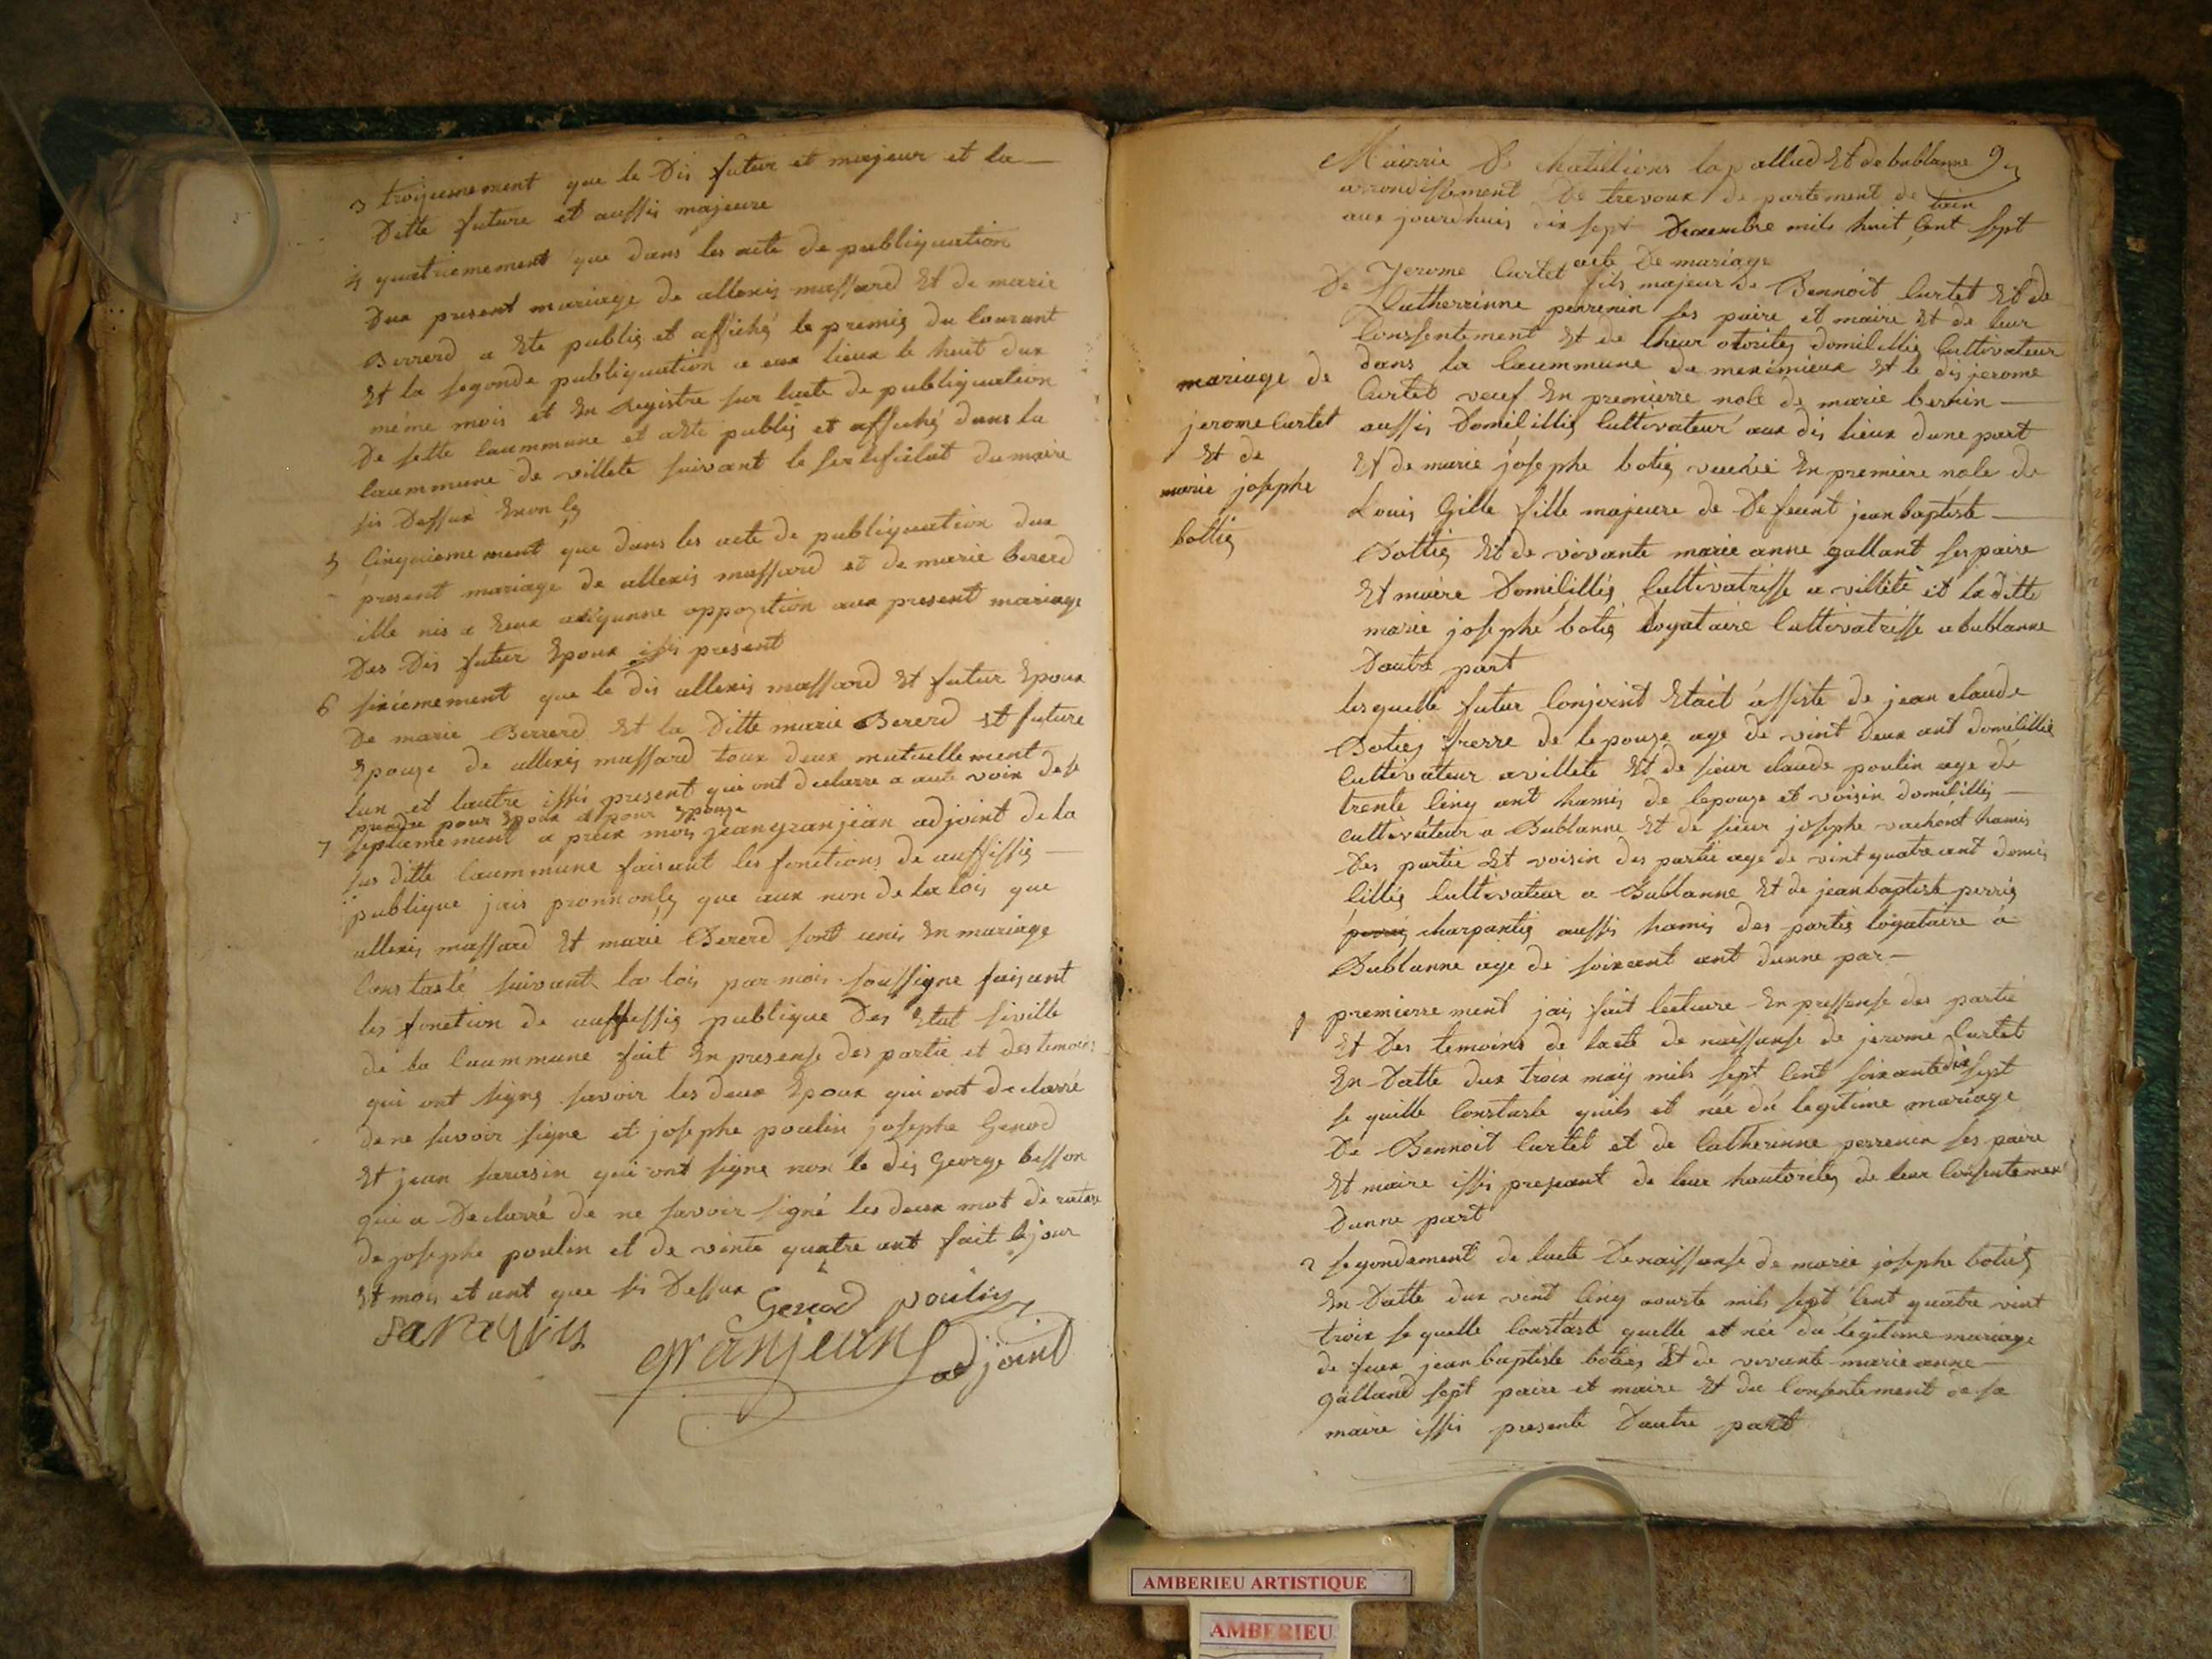 3 troijiemement que le Dis futur et majeur et la
Ditte future et aussis majeure
4 quatriemement que dans les acte de publiquation
Dux present mariage de allexis massard Et de marie
Berrerd a Ete publiq et affiché le premig du Courant
Et la segonde publiquation a eux lieux le huit dux
même mois et En Registre sur lacte de publiquation
De sette Caummune et aEte publig et affiché dans la
Caummune de villete suivant le sertificat du maire
sis Dessux
5 Cinquiemement que dans les acte de publiquation dux
present mariage de allexis massard et de marie bererd
ille nis a Eux auqunne oppoztion aux present mariage
Des Dis futur Epoux issis present
6 sixiemement que le dis allexis massard Et futur Epoux
De marie Berrerd Et la Ditte marie Bererd Et future
Epouze de allexis massard toux deux mutuellement
lun et lautre issis present qui ont declarre a aute voix de se
prandre pour Epoux et pour Epouze
7 septiemement a prèx mois jean granjean adjoint de la
sus ditte Caummune faisant les fonctions de auffissig
publique jais pronnonsg que aux non de la lois que
allexis massard Et marie Bererd sont unis En mariage
Constasté suivant la lois par mois soussigne faisant
les fonction de auffissig publique Des Etat siville
de la Caummune fait En presense des partie et des temoins
qui ont signg savoir les deux Epoux qui ont declarré
de ne savoir signe et josephe poulin josephe Genod
Et jean sarasin qui ont signg non le dis George besson
qui a Declarré de ne savoir signé les deux mot de
de josephe poulin et de vinte quatre ant fait le jour
Et mois et ant que sis Dessux
Genod poulin
sarasin
granjean adjoint
Mairrie De chatillions la pallud Et de bublanne 9
arrondissement De trevoux de partement de lain
aux jourdhuis dix sept Decembre mils huit Cent sept
acte De mariage
De Jerome Curtet fils majeur de Bennoit Curtet Et de
Catherrinne perrenin ses paire et maire Et de leur
Conssentement Et de lheur otoriteg domilillig Cultivateur
dans la Caummune de meximieux Et le dis jerome
Curtet veuf En premierre nole de marie bernin
aussis Domilillig Cultivateur aux dis lieux dune part
mariage de
jerome Curtet
Et de
marie josephe
bottig
Et de marie josephe botig veuve En premiere nole de
Louis Gille fille majeure de De feunt jean baptiste
Bottig Et de vivante marie anne gallant ses paire
Et maire Domilillés Cultivatrisse a villete et la ditte
marie josephe botig loyataire Cultivatrisse a bublanne
Dautre part
lesquelle futur Conjoint Etait assiste de jean claude
Botieg frerre de lepouze age de vint deux ant domilillié
Cultivateur avillete Et de sieur claude poulin age de
trente Cinq ant hamis de lepouze et voisin domilillis
Cultivateur a Bublanne Et de sieur josephe vachont hamis
Des partie Et voisin des partie age de vint quatre ant domis
lillig Cultivateur a Bublanne Et de jean baptiste perrig
charpantig aussis hamis des partis loyataire a
Bublanne age de soixant ant dunne par
1 premierre ment jais fait lecture En pressense des partie
Et Des temoins de lacte de naissanse de jerome Curtet
En Datte dux troix maÿ mils sept Cent soixante dix sept
se quille Constaste quils et née du legitime mariage
De Bennoit Curtet et de Catherinne perrenin ses paire
Et maire issis present de leur hautoriteg de leur Consentemen
Dunne part
2 segondement de lacte De naissanse de marie josephe botieg
En Datte dux vent Cinq aouste mils sept Cent quatre vint
troix se quelle Constaste quelle et née du legitime mariage
de feux jean baptiste botieg Et de vivante marie anne
galland sept paire et maire Et du Consentement de sa
maire issis presente Dautre part
AMBERIEU ARTISTIQUE
AMBERIEU